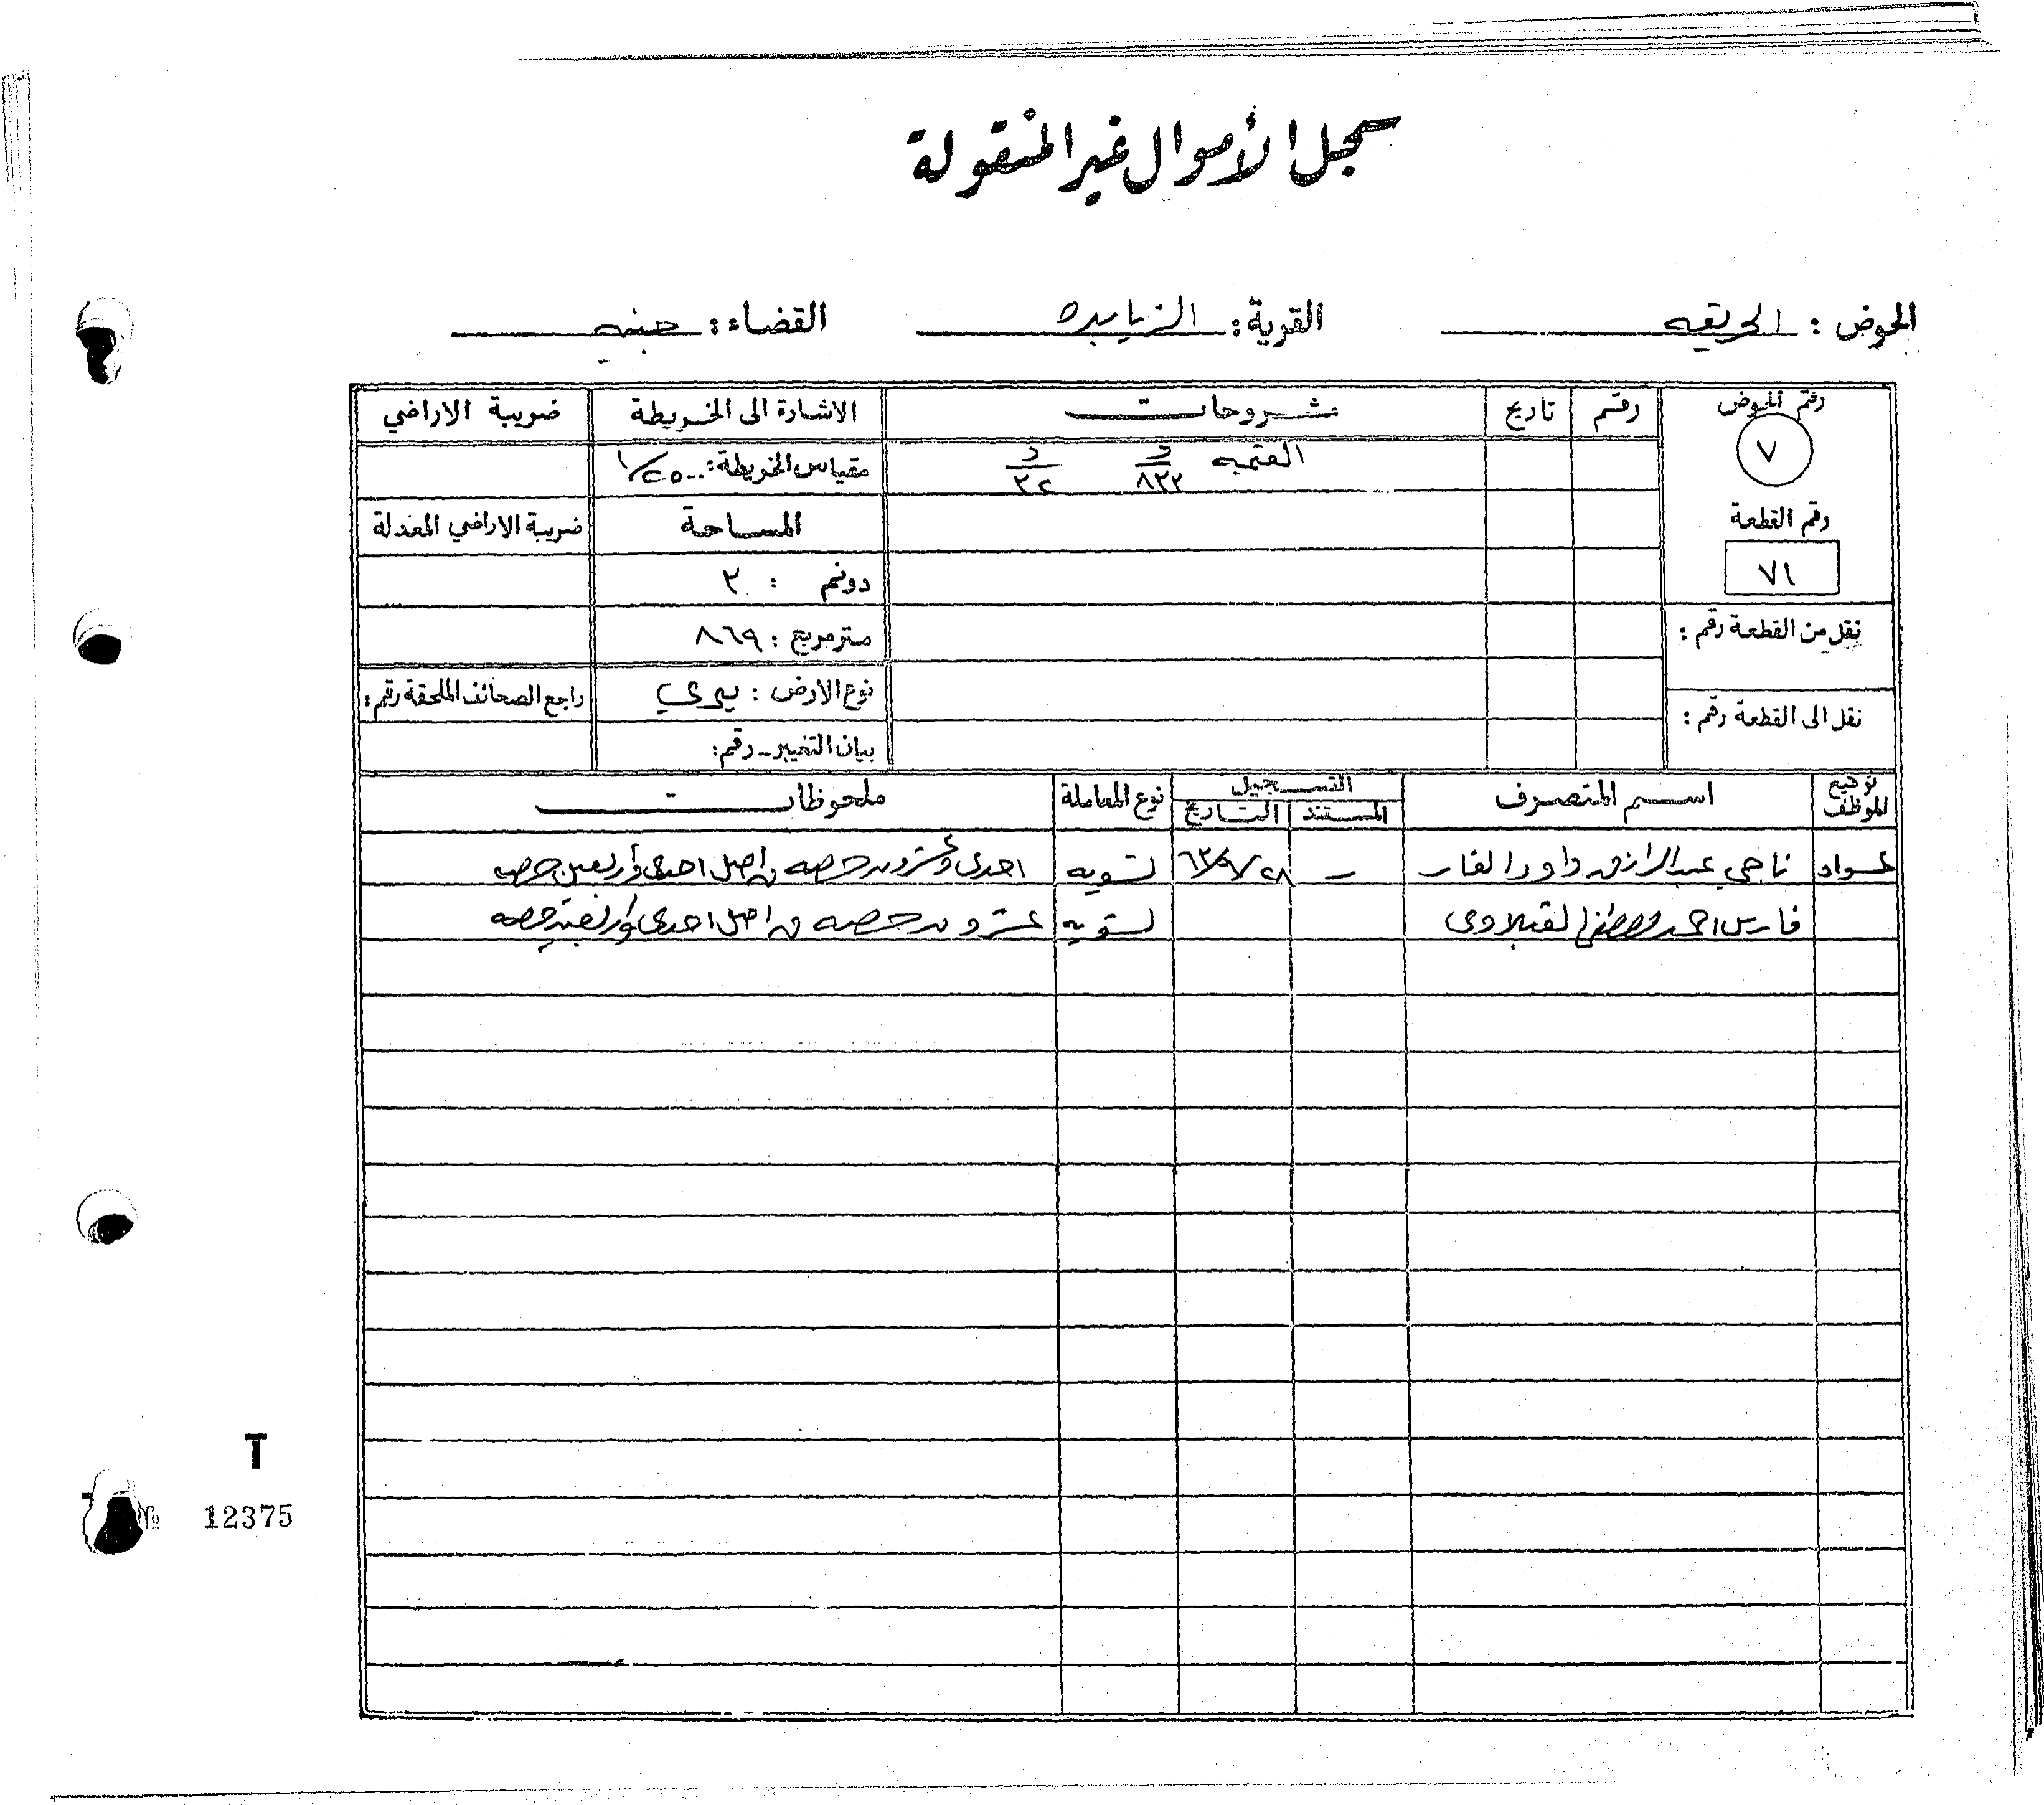 سجل الأموال غير المنقولة
الحوض : الحريقه القرية : الزبايده القضاء : جنين
رقم الحوض رقم تاريخ مشروحات الاشارة الى الخريطة ضريبة الاراضي
٧ القيمه د/٨٣٢ د/٣٤ مقياس الخريطة : ١/٢٥٠٠
رقم القطعة المساحة ضريبة الاراضي المعدلة
٧١ دونم : ٢
نقل من القطعة رقم : متر مربع : ٨٦٩
نوع الارض : ميري راجع الصحائف الملحقة رقم :
نقل الى القطعة رقم : بيان التغيير - رقم :
توقيع الموظف اسم المتصرف التسجيل نوع المعاملة ملحوظات
المستند التاريخ
عواد ناجي عبد الرازق داود الفار - ٢٨/٩/٦٣ تسويه احدى وعشرون حصه من اصل احدى وأربعين حصه
فارس احمد مصطفى القبلاوي تسويه عشرون حصه من اصل احدى وأربعين حصه
T
№ 12375